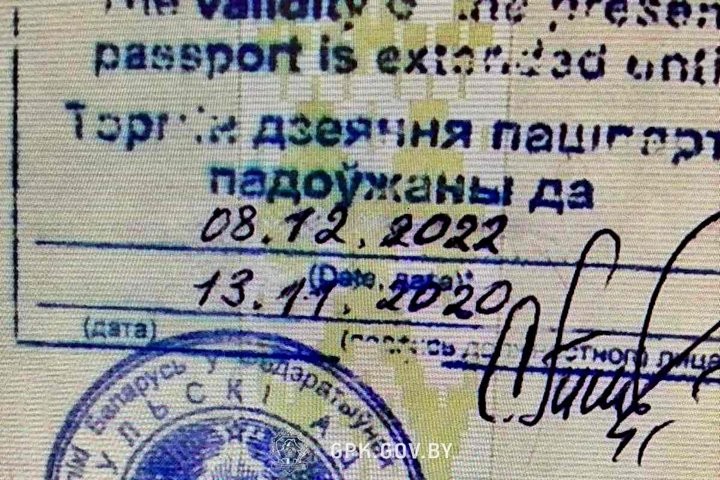 The validity of the present
passport is extended until
Тэрмін дзеяння пашпарт
падоўжаны да
08.12.2022
(Date, дата)
13.11.2020
(дата)
(подпись должностного лица
Беларусь у Федэратыўн
УЛЬСКІ АД
GPK.GOV.BY